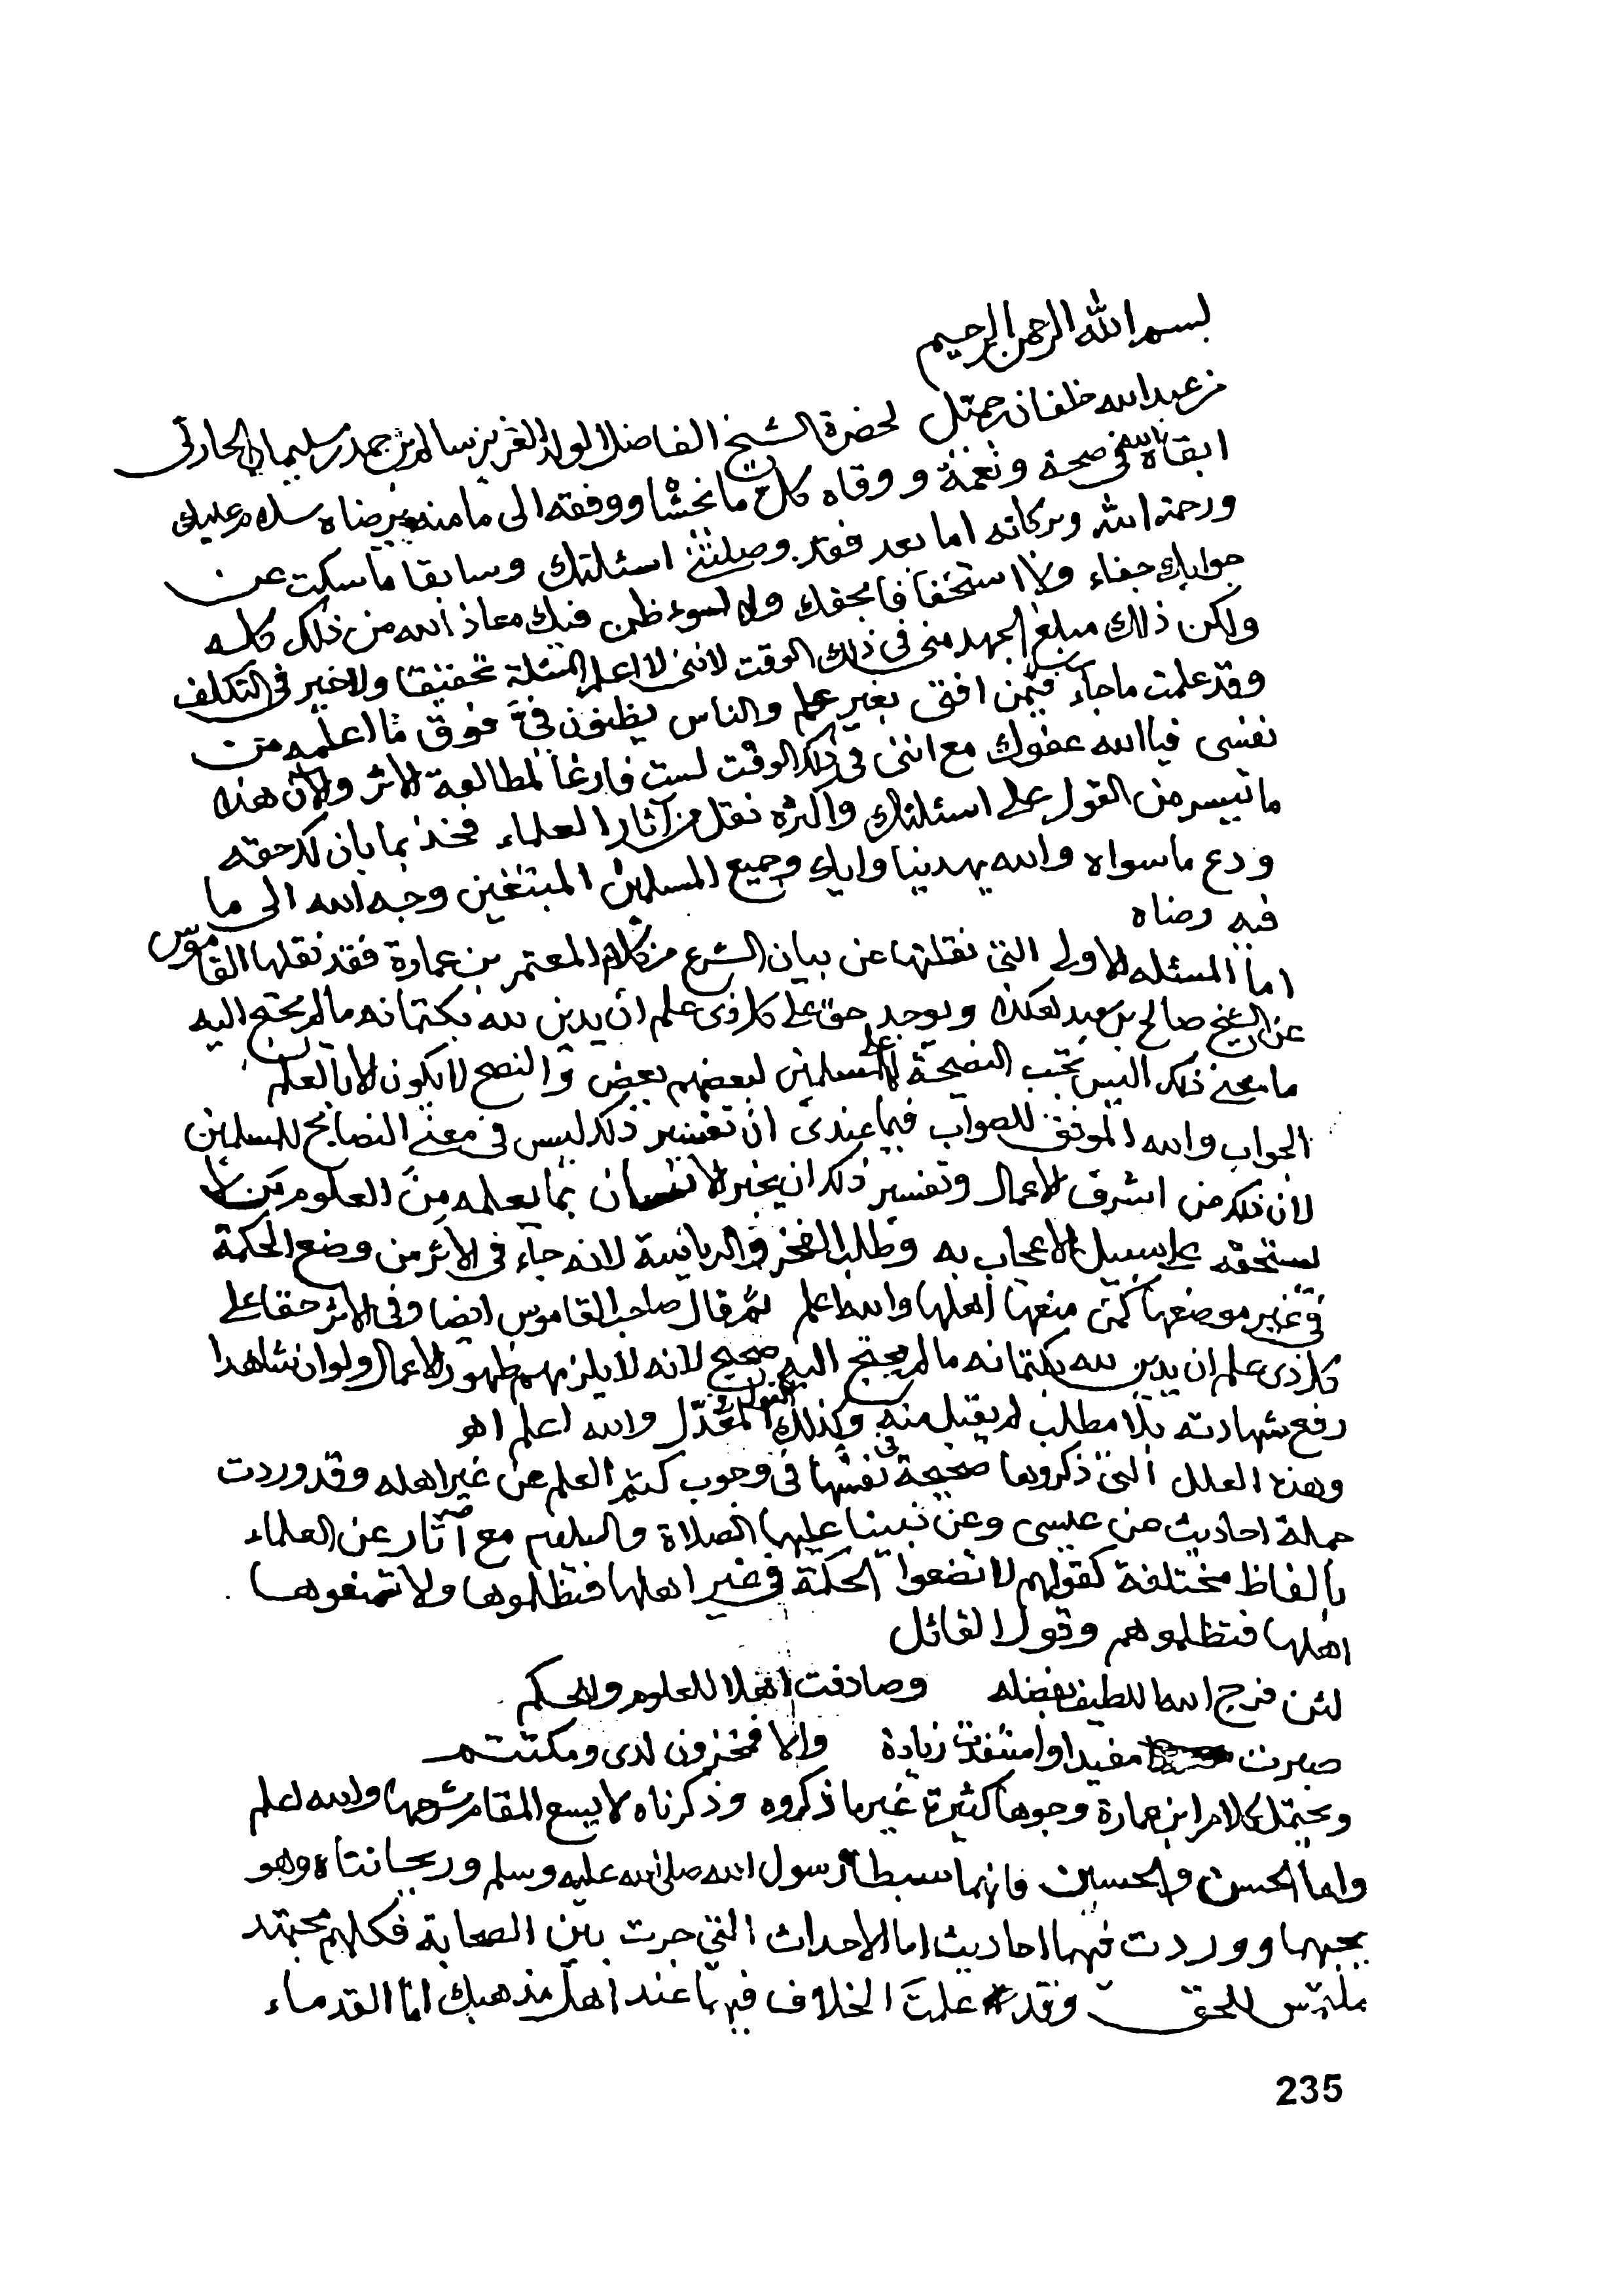 بسم الله الرحمن الرحيم
من عبدالله خلفان بن جميّل لحضرة الشيخ الفاضل الولد العزيز سالم بن حمد بن سليمان الحارثي
ابقاه الله في صحة ونعمة و وقاه كل ما نخشا ووفقه الى ما منه يرضاه سلام عليك
ورحمة الله وبركاته اما بعد فقد وصلتني اسئلتك وسابقا ما سكت عن
جوابك جفاء ولا استخفافا بحقك ولا لسوء ظن فيك معاذ الله من ذلك كله
ولكن ذلك مبلغ الجهد مني في ذلك الوقت لانني لا اعلم المسئلة تحقيقا ولا خير في التكلف
وقد علمت ما جاء فيمن افتى بغير علم والناس يظنون فيّ فوق ما اعلمه من
نفسى فيا الله عفوك مع انني في ذلك الوقت لست فارغا لمطالعة الاثر والآن هذه
ما تيسر من القول على اسئلتك واكثره نقل من آثار العلماء فخذ بما بان لك حقه
ودع ما سواه والله يهدينا واياك وجميع المسلمين المبتغين وجه الله الى ما
فيه رضاه
اما المسئله الاولى التي نقلتها عن بيان الشرع من كلام المعتمر بن عمارة فقد نقلها القاموس
عن الشيخ صالح بن سعيد هكذا ويوجد حق على كل ذى علم ان يدين لله بكتمانه ما لم يحتج اليه
ما معنى ذلك اليس تجب النصيحة على المسلمين لبعضهم بعض والنصح لا يكون الا بالعلم
الجواب والله الموفق للصواب فيما عندى ان تفسير ذلك ليس في معنى النصايح للمسلمين
لان ذلك من اشرف الاعمال وتفسير ذلك ان يخبر الانسان بما يعلمه من العلوم من لا
يستحقه على سبيل الاعجاب به وطلب الفخر والرياسة لانه جاء في الاثر من وضع الحكمة
في غير موضعها كمن منعها اهلها والله اعلم ثم قال صاحب القاموس ايضا وفي الاثر حقا على
كل ذى علم ان يدين لله بكتمانه ما لم يحتج اليه صحيح لانه لا يلزمهم ظهور الاعمال ولو ان شاهدا
رفع شهادته بلا مطلب لم يقبل منه وكذلك المعدّل والله اعلم اهـ
وهذه العلل التي ذكروها صحيحة في نفسها في وجوب كتم العلم عن غير اهله وقد وردت
جملة احاديث عن عيسى وعن نبينا عليهما الصلاة والسلام مع آثار عن العلماء
بالفاظ مختلفة كقولهم لا تضعوا الحكمة في غير اهلها فتظلموها ولا تمنعوها
اهلها فتظلموهم وقول القائل
لئن فرج الله اللطيف بفضله وصادفت اهلا للعلوم وللحكم
صبرت مفيدا وامتنفدت زيادة والا فمخزون لدى ومكتتم
ويحتمل كلام ابن عمارة وجوها كثيرة غير ما ذكروه وذكرناه لا يسع المقام شرحها والله اعلم
واما الحسن والحسين فانهما سبطا رسول الله صلى الله عليه وسلم وريحانتاه وهو
يحبهما ووردت فيهما احاديث اما الاحداث التي جرت بين الصحابة فكلهم مجتهد
ملتمس للحق وقد علمت الخلاف فيها عند اهل مذهبك اما القدماء
235